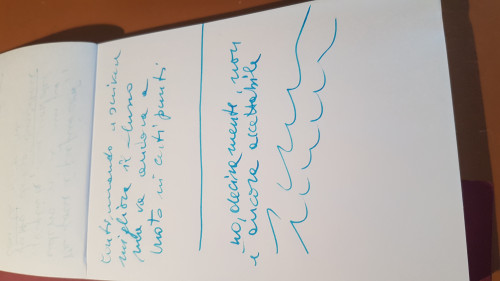 continuando a scrivere
migliora il flusso
ma va ancora a
vuoto in certi punti
no, decisamente, non
è ancora accettabile